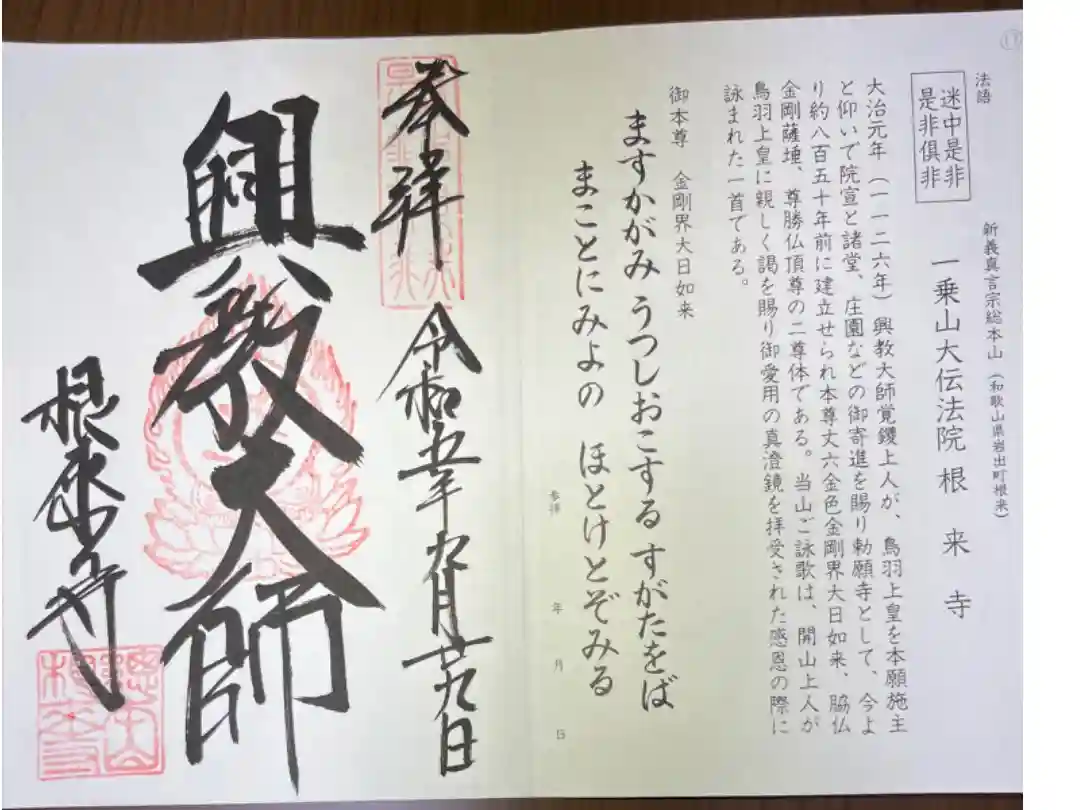 法語
迷中是非
是非俱非
新義真言宗総本山（和歌山県岩出町根来）
一乗山大伝法院 根来寺
大治元年（一一二六年）興教大師覚鑁上人が、鳥羽上皇を本願施主
と仰いで院宣と諸堂、庄園などの御寄進を賜り勅願寺として、今よ
り約八百五十年前に建立せられ本尊丈六金色金剛界大日如来、脇仏
金剛薩埵、尊勝仏頂尊の二尊体である。当山ご詠歌は、開山上人が
鳥羽上皇に親しく謁を賜り御愛用の真澄鏡を拝受された感恩の際に
詠まれた一首である。
御本尊 金剛界大日如来
ますかがみ うつしおこする すがたをば
まことにみよの ほとけとぞみる
参拝 年 月 日
奉拝
令和五年九月廿九日
興教大師
根来寺